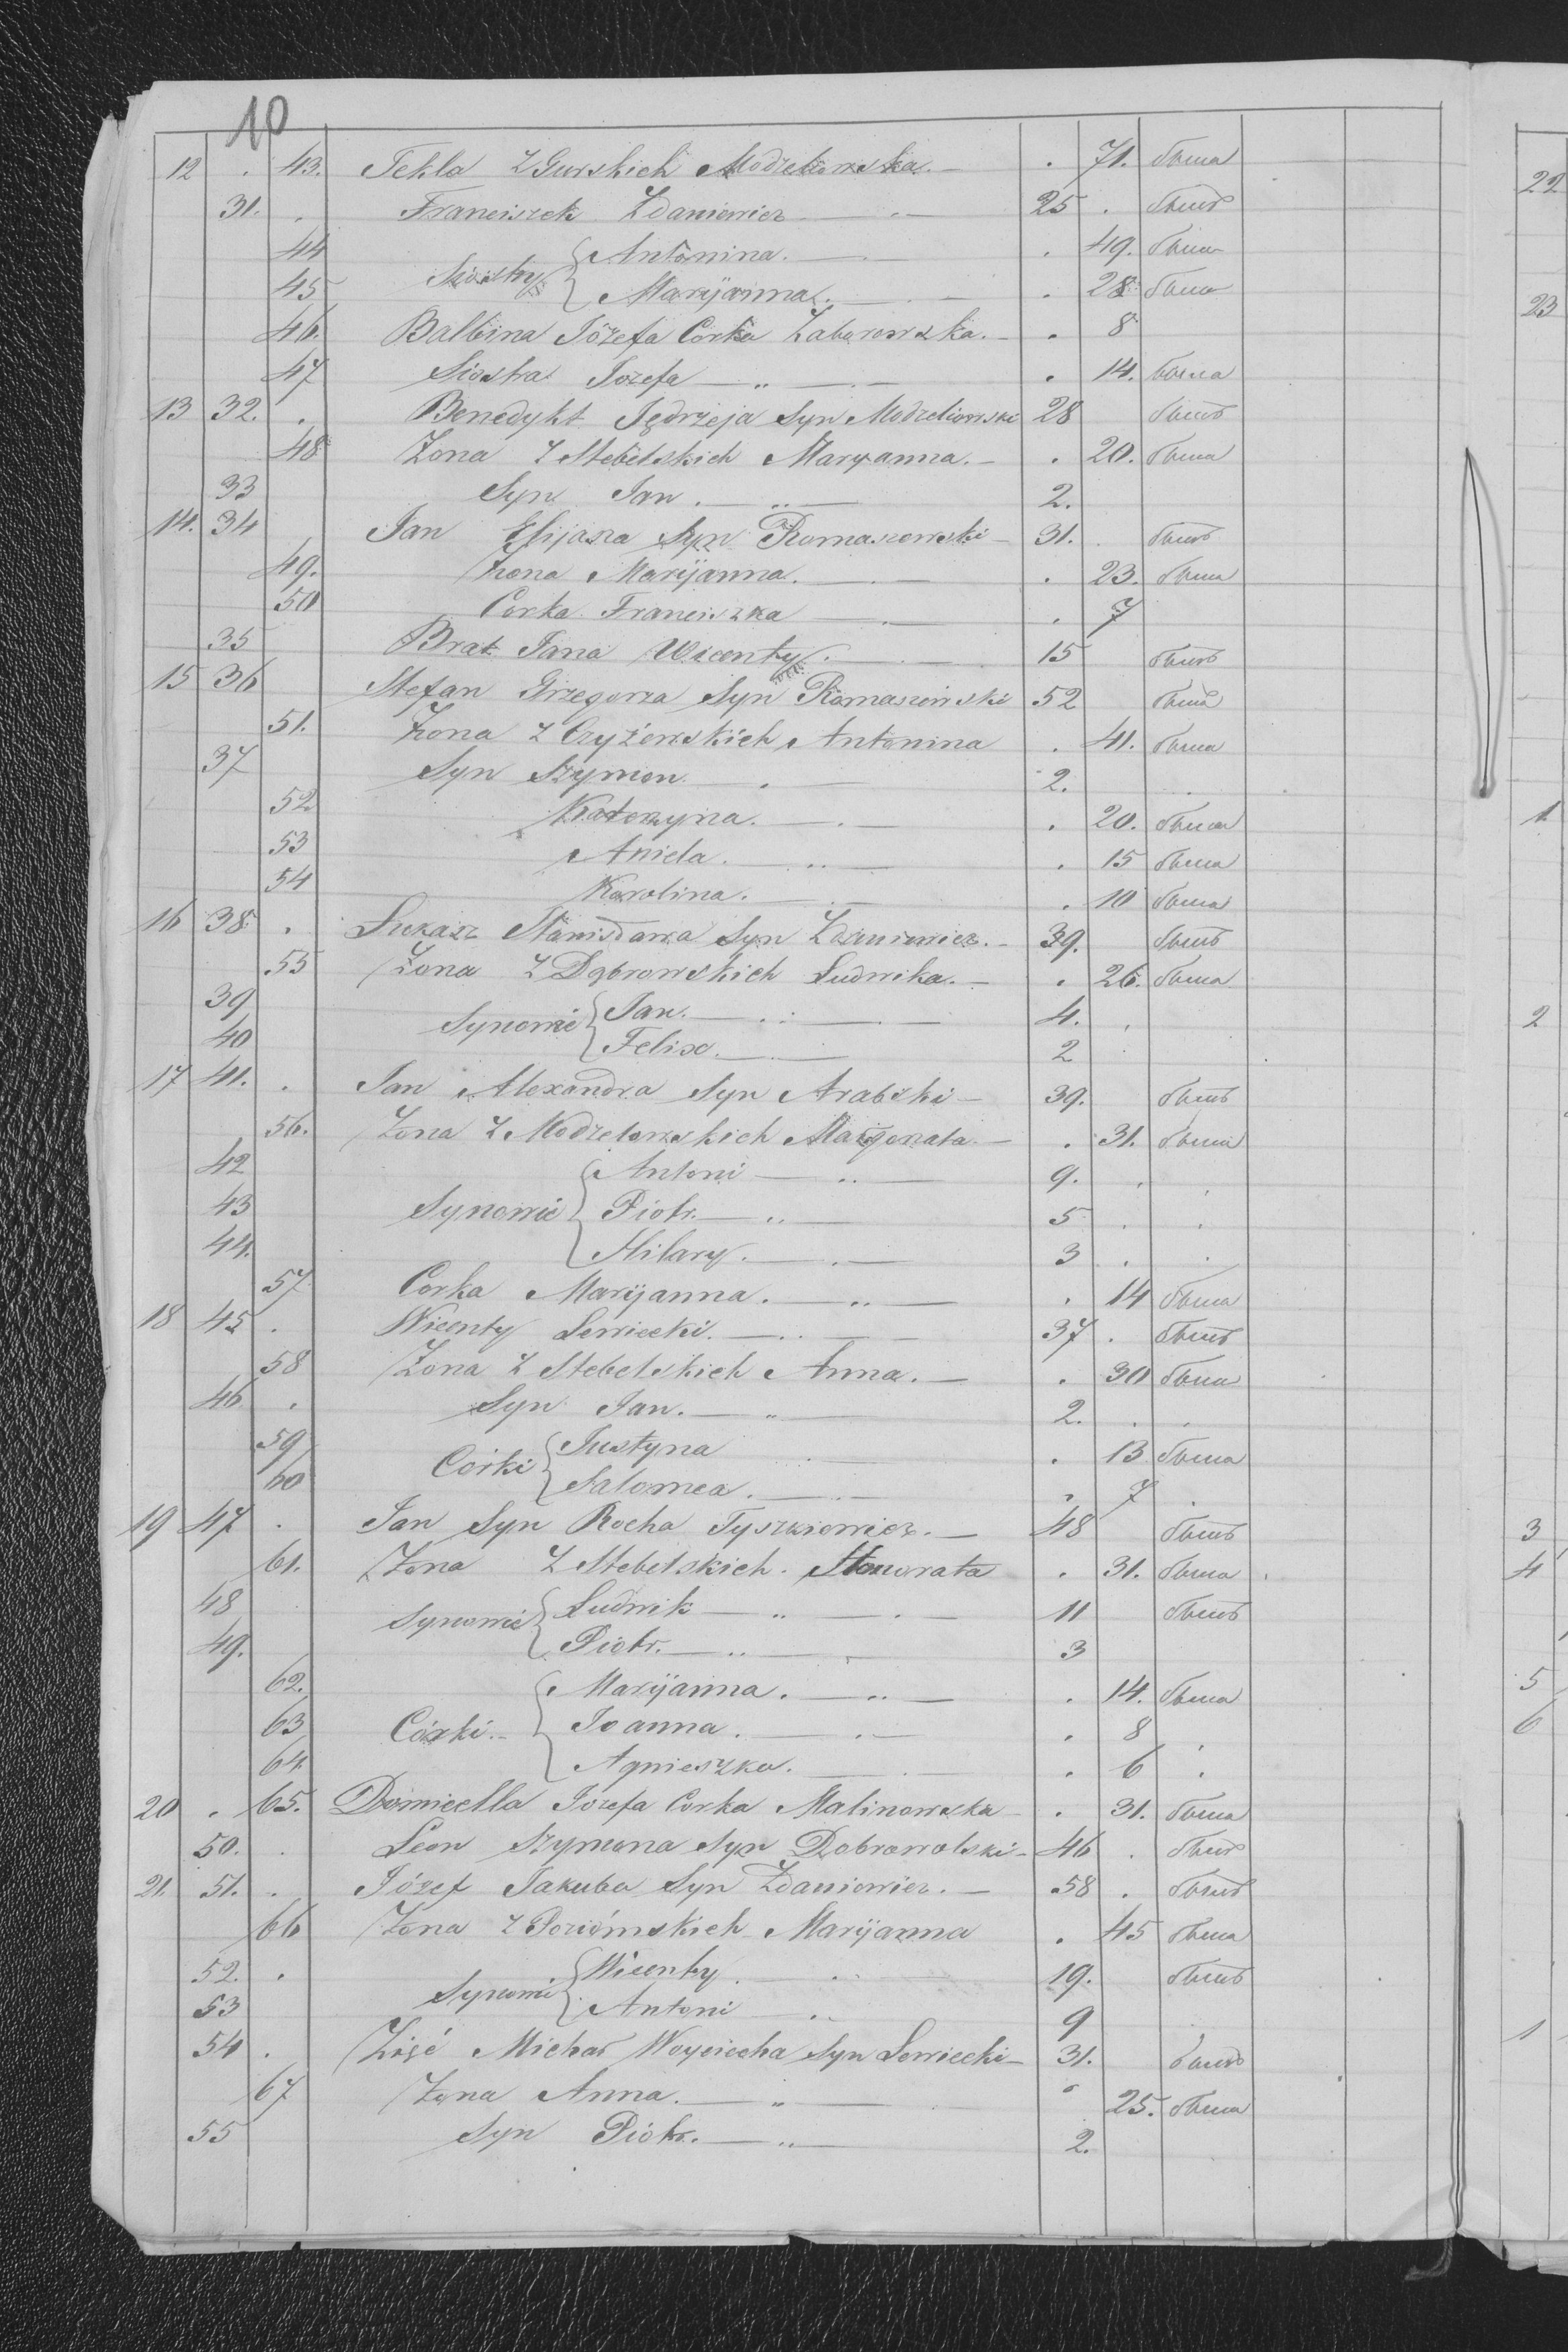 10
12 . 43. Tekla z Gurskich Modzelewska. — . 71. была
31. . Franciszek Zdaniewicz — 25 . былъ
44 Siostry { Antonina. — . 49. была
45 Maryanna. — . 28 была
46. Balbina Józefa Corka Zaborowska. — . 8
47 Siostra Jozefa — „ — . 14. была
13 32. . Benedykt Jędrzeja Syn Modzeliewski 28 былъ
48 Zona z Stebelskich Maryanna. — . 20. была
33 Syn Jan. — „ — 2.
14. 34 Jan Elijasza Syn Romaszewski — 31. былъ
49. Zona Maryanna. — . 23. была
50 Corka Franciszka — . 7
35 Brat Jana Wicenty. — 15 былъ
15 36 Stefan Grzegorza Syn Romaszewski 52 былъ
51. Zona z Czyżewskich Antonina . 41. была
37 Syn Szymon — 2.
52 Katarzyna. — . 20. была
53 Aniela. — . 15 была
54 Karolina. — . 10 была
16 38 . Łukasz Stanisława Syn Zdaniewicz. — 39. былъ
55 Zona z Dąbrowskich Ludwika. — . 26. была
39 Synowie { Jan. — 4.
40 Felix. — 2
17 41. . Jan Alexandra Syn Arabski — 39. былъ
56. Zona z Modzelewskich Małgorzata — . 31. была
42 Antoni — „ — 9. .
43 Synowie { Piotr. — „ — 5 .
44. Hilary. — 3 .
57 Corka Maryanna. — „ — . 14 была
18 45 . Wicenty Lewicki. — 37 . былъ
58 Zona z Stebelskich Anna. — . 30 была
46 . Syn Jan. — „ — 2. .
59 Córki { Justyna — . 13 была
60 Salomea. — . 7 .
19 47 . Jan Syn Rocha Tyszkiewicz. — 48 былъ
61. Zona z Stebelskich Honorata . 31. была
48 Synowie { Ludwik — „ — 11 былъ
49. Piotr. — „ — 3
62. Maryanna. — „ — . 14. была
63 Córki. { Joanna. — . 8 .
64 Agnieszka. — . 6 .
20 . 65. Domicella Jozefa Corka Malinowska — . 31. была
50. . Leon Szymona Syn Dobrowolski — 46 . былъ
21. 51. . Józef Jakuba Syn Zdaniewicz. — 58 . былъ
66 Zona z Poziómskich Maryanna . 45 была
52. . Synowie { Wicenty — 19. былъ
53 Antoni — 9
54 . Zięć Michał Woyciecha Syn Lewicki — 31. былъ
67 Zona Anna. — „ — . 25. была
55 Syn Piotr. — „ — 2.
22
23
1
2
3
4
5
6
1